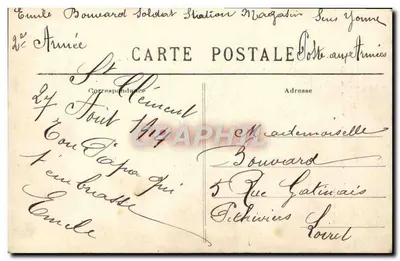 Emile Bouvard Soldat Station Magasin Sens Yonne
2e Armée
CARTE POSTALE
Poste aux Armées
Correspondance
Adresse
St Clément
27 Août 1914
Ton Papa qui
t'embrasse
Emile
Mademoiselle
Bouvard
5 Rue Gatinais
Pithiviers
Loiret
CPAPHIL